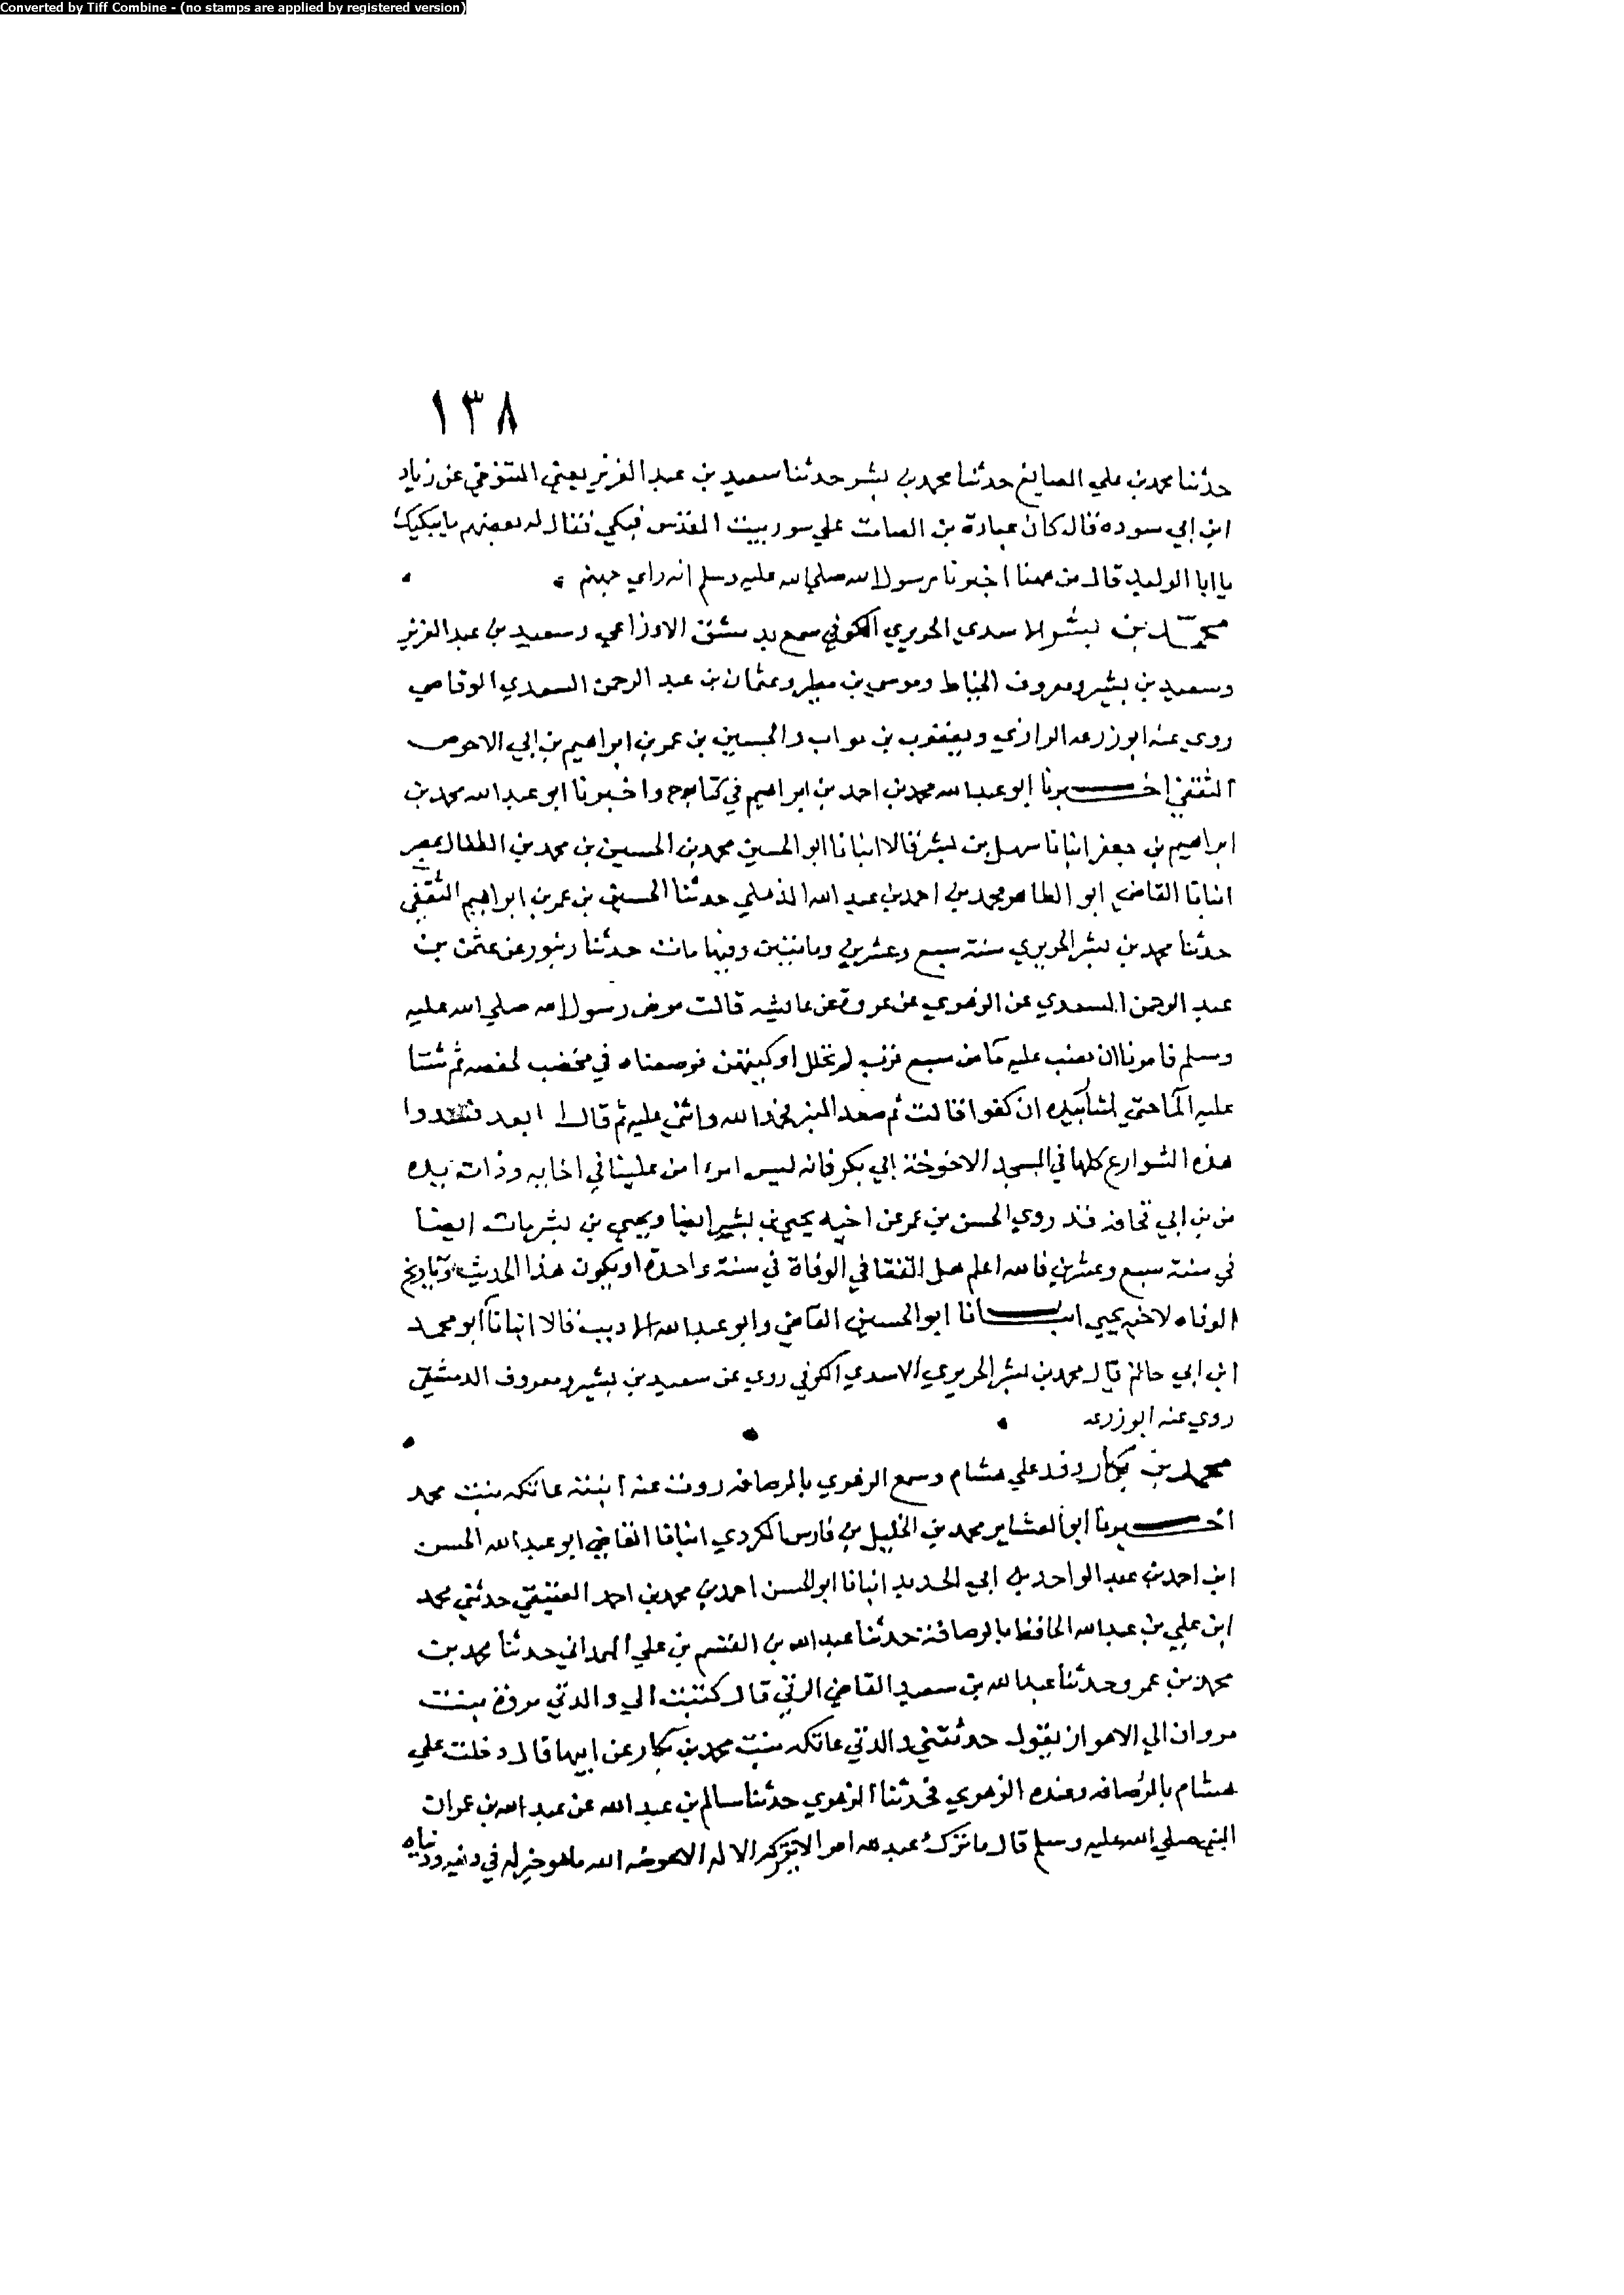 Converted by Tiff Combine - (no stamps are applied by registered version)
١٣٨
حدثنا محمد بن علي الصايغ حدثنا محمد بن بشر حدثنا سعيد بن عبد العزيز يعني التنوخي عن زياد
ابن ابي سوده قال كان عبادة بن الصامت علي سور بيت المقدس فبكي فقال له بعضهم ما يبكيك
يا ابا الوليد قال من ههنا اخبرنا رسول الله صلي الله عليه وسلم انه راي جهنم
محمد بن بشر الاسدي الحريري الكوفي سمع بدمشق الاوزاعي وسعيد بن عبد العزيز
وسعيد بن بشير ومعروف الخياط وموسي بن مطير وعثمان بن عبد الرحمن السعدي الوقاصي
روي عنه ابو زرعه الرازي ويعقوب بن بواب والحسين بن عمر بن ابراهيم بن ابي الاحوص
الثقفي اخبرنا ابو عبد الله محمد بن احمد بن ابراهيم في كتابه ح واخبرنا ابو عبد الله محمد بن
ابراهيم بن جعفر انبانا سهل بن بشر قالا انبانا ابو الحسين محمد بن الحسين بن محمد بن الطفال بمصر
انبانا القاضي ابو الطاهر محمد بن احمد بن عبد الله الذهلي حدثنا الحسين بن عمر بن ابراهيم الثقفي
حدثنا محمد بن بشر الحريري سنة سبع وعشرين ومايتين وفيها مات حدثنا عن عثمن بن
عبد الرحمن السعدي عن الزهري عن عروة عن عايشه قالت مرض رسول الله صلي الله عليه
وسلم فامرنا ان نصب عليه ما من سبع قرب لم تحلل اوكيتهن فوضعناه في مخضب لحفصه ثم شننا
عليه الما حتي اشار بيده ان كفوا قالت ثم صعد المنبر فحمد الله واثني عليه ثم قال اما بعد فسدوا
هذه الشوارع كلها في المسجد الا خوخة ابي بكر فانه ليس امرء امن علينا في اخايه وذات يده
من بن ابي قحافه قد روي الحسن بن عمر عن اخيه يحيي بن بشير ايضا ويحيي بن بشر مات ايضا
في سنة سبع وعشرين فالله اعلم هل اتفقا في الوفاة في سنة واحدة او يكون هذا الحديث وتاريخ
الوفاه لاخيه يحيي انبانا ابو الحسين القاضي وابو عبد الله الاديب قالا انبانا ابو محمد
ابن ابي حاتم قال محمد بن بشر الحريري الاسدي الكوفي روي عن سعيد بن بشير ومعروف الدمشقي
روي عنه ابو زرعه
محمد بن بكار وفد علي هشام وسمع الزهري بالرصافه روت عنه ابنته عاتكه بنت محمد
اخبرنا ابو العشاير محمد بن الخليل بن فارس الكردي انبانا القاضي ابو عبد الله الحسن
ابن احمد بن عبد الواحد بن ابي الحديد انبانا ابو الحسن احمد بن محمد بن احمد العتيقي حدثني محمد
ابن علي بن عبد الله الحافظ بالرصافة حدثنا عبد الله بن القسم بن علي الهمداني حدثنا محمد بن
محمد بن عمرو حدثنا عبد الله بن سعيد القاضي الرقي قال كتبت الي والدتي مروة بنت
مروان الي الاهواز بقول حدثتني والدتي عاتكه بنت محمد بن بكار عن ابيها قال دخلت علي
هشام بالرصافه وعنده الزهري فحدثنا الزهري حدثنا سالم بن عبد الله عن عبد الله بن عمر ان
النبي صلي الله عليه وسلم قال ما ترك عبد لله امرا لا يتركه الا له الا عوضه الله ما هو خير له في دينه ودنياه